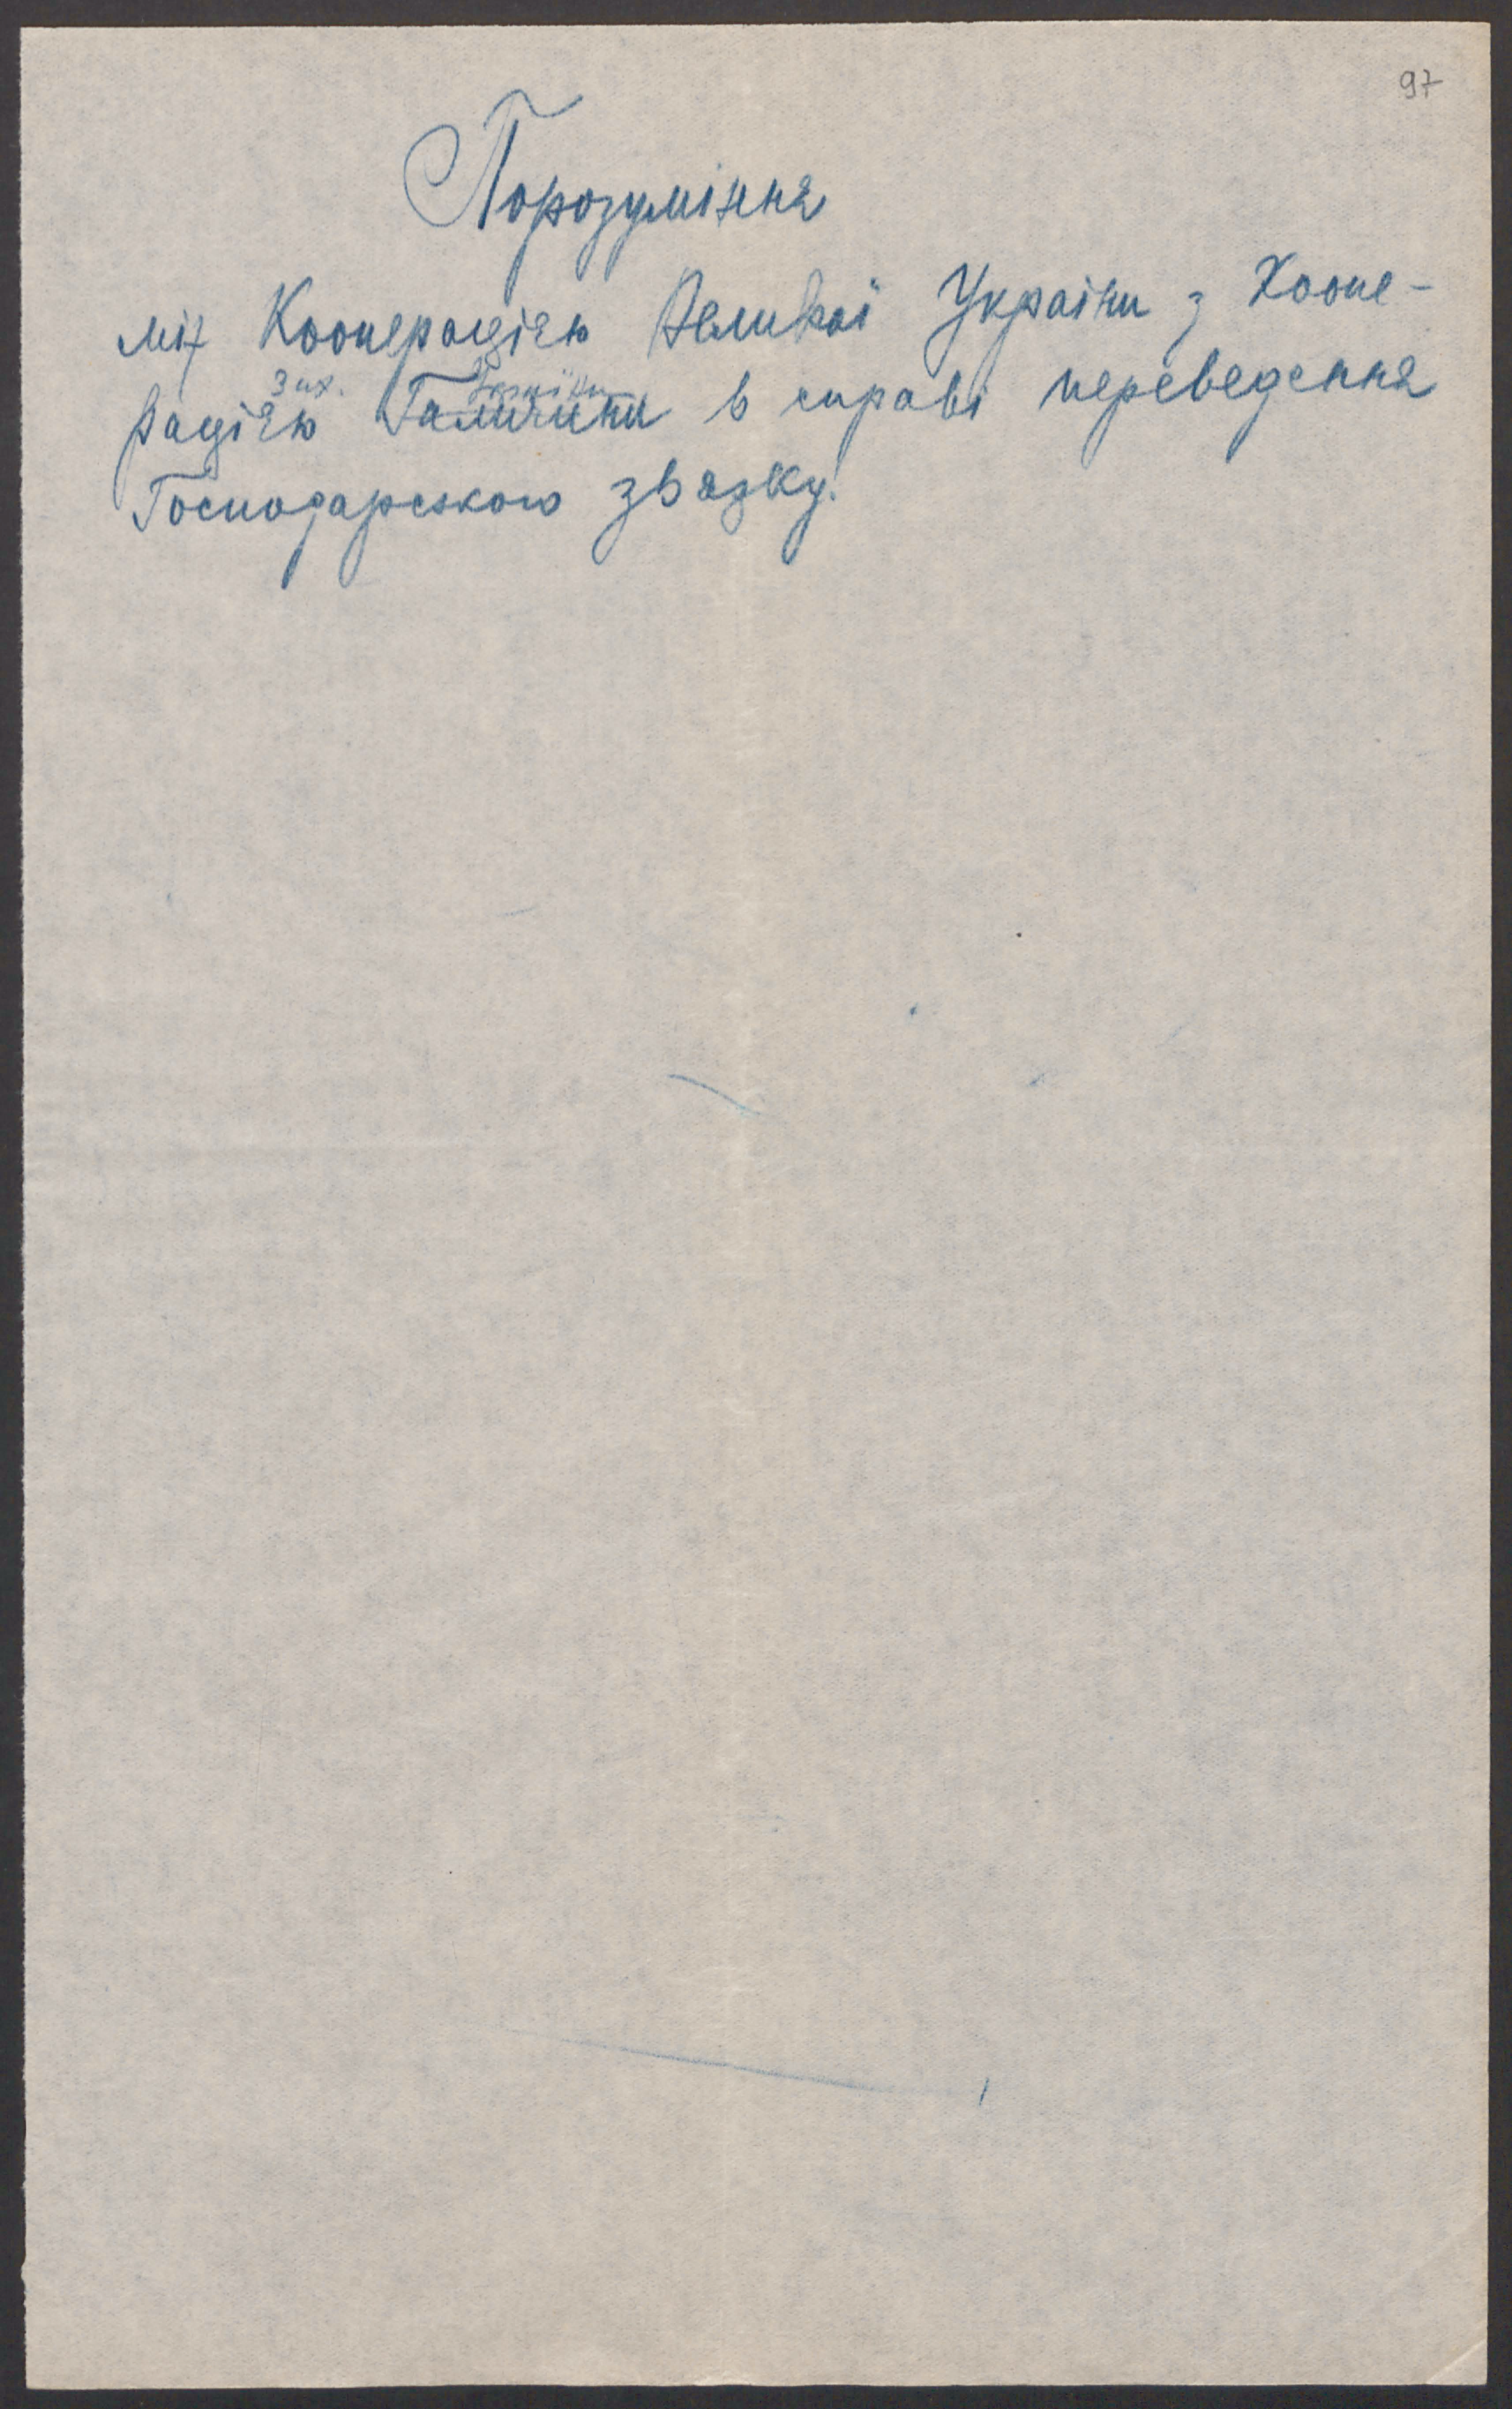 97
Порозуміння
між Кооперацією Великої України з Коопе-
зах. України
рацією Галичини в справі переведення
Господарського звязку.